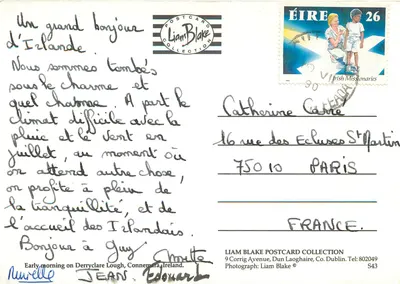 Un grand bonjour
d'Irlande.
Nous sommes tombés
sous le charme et
quel charme. A part le
climat difficile avec la
pluie et le vent en
juillet, au moment où
on attend autre chose,
on profite à plein de
la tranquillité, et de
l'accueil des Irlandais.
Bonjour à Guy
JEAN. Edouard
Early morning on Derryclare Lough, Connemara, Ireland.
POSTCARD
Liam Blake
COLLECTION
ÉIRE 26
Irish Missionaries
VII
90
Catherine Carré
16 rue des Ecluses St Martin
75010 PARIS
FRANCE.
LIAM BLAKE POSTCARD COLLECTION
9 Corrig Avenue, Dun Laoghaire, Co. Dublin. Tel: 802049
Photograph: Liam Blake ©
543